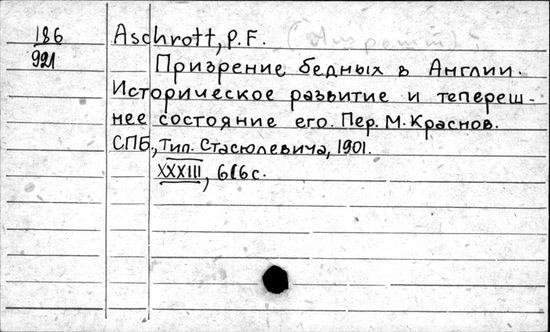 186
991
Aschrott, P. F.
Призрение бедных в Англии.
Историческое развитие и тепереш-
нее состояние его. Пер. М. Краснов.
СПБ., Тип. Стасюлевича, 1901.
XXXIII, 616 с.